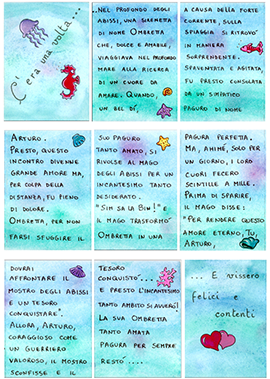 C'era una volta...
Nel profondo degli
abissi, una sirenetta
di nome Ombretta
che, dolce e amabile,
viaggiava nel profondo
mare alla ricerca
di un cuore da
amare. Quando,
un bel dì,
a causa della forte
corrente, sulla
spiaggia si ritrovò
in maniera
sorprendente.
Spaventata e agitata,
fu presto consolata
da un simpatico
paguro di nome
Arturo.
Presto, questo
incontro divenne
grande amore ma,
per colpa della
distanza, fu pieno
di dolore.
Ombretta, per non
farsi sfuggire il
suo paguro
tanto amato, si
rivolse al mago
degli abissi per un
incantesimo tanto
desiderato.
"Sim Sa La Bim!" e
il mago trasformò
Ombretta in una
pagura perfetta.
Ma, ahimè, solo per
un giorno, i loro
cuori fecero
scintille a mille.
Prima di sparire,
il mago disse:
"Per rendere questo
amore eterno, tu,
Arturo,
dovrai
affrontare il
mostro degli abissi
e un tesoro
conquistare".
Allora, Arturo,
coraggioso come
un guerriero
valoroso, il mostro
sconfisse e il
tesoro
conquistò...
e presto l'incantesimo
tanto ambito si avverò!
La sua Ombretta
tanto amata
pagura per sempre
restò....
... E vissero
felici e
contenti